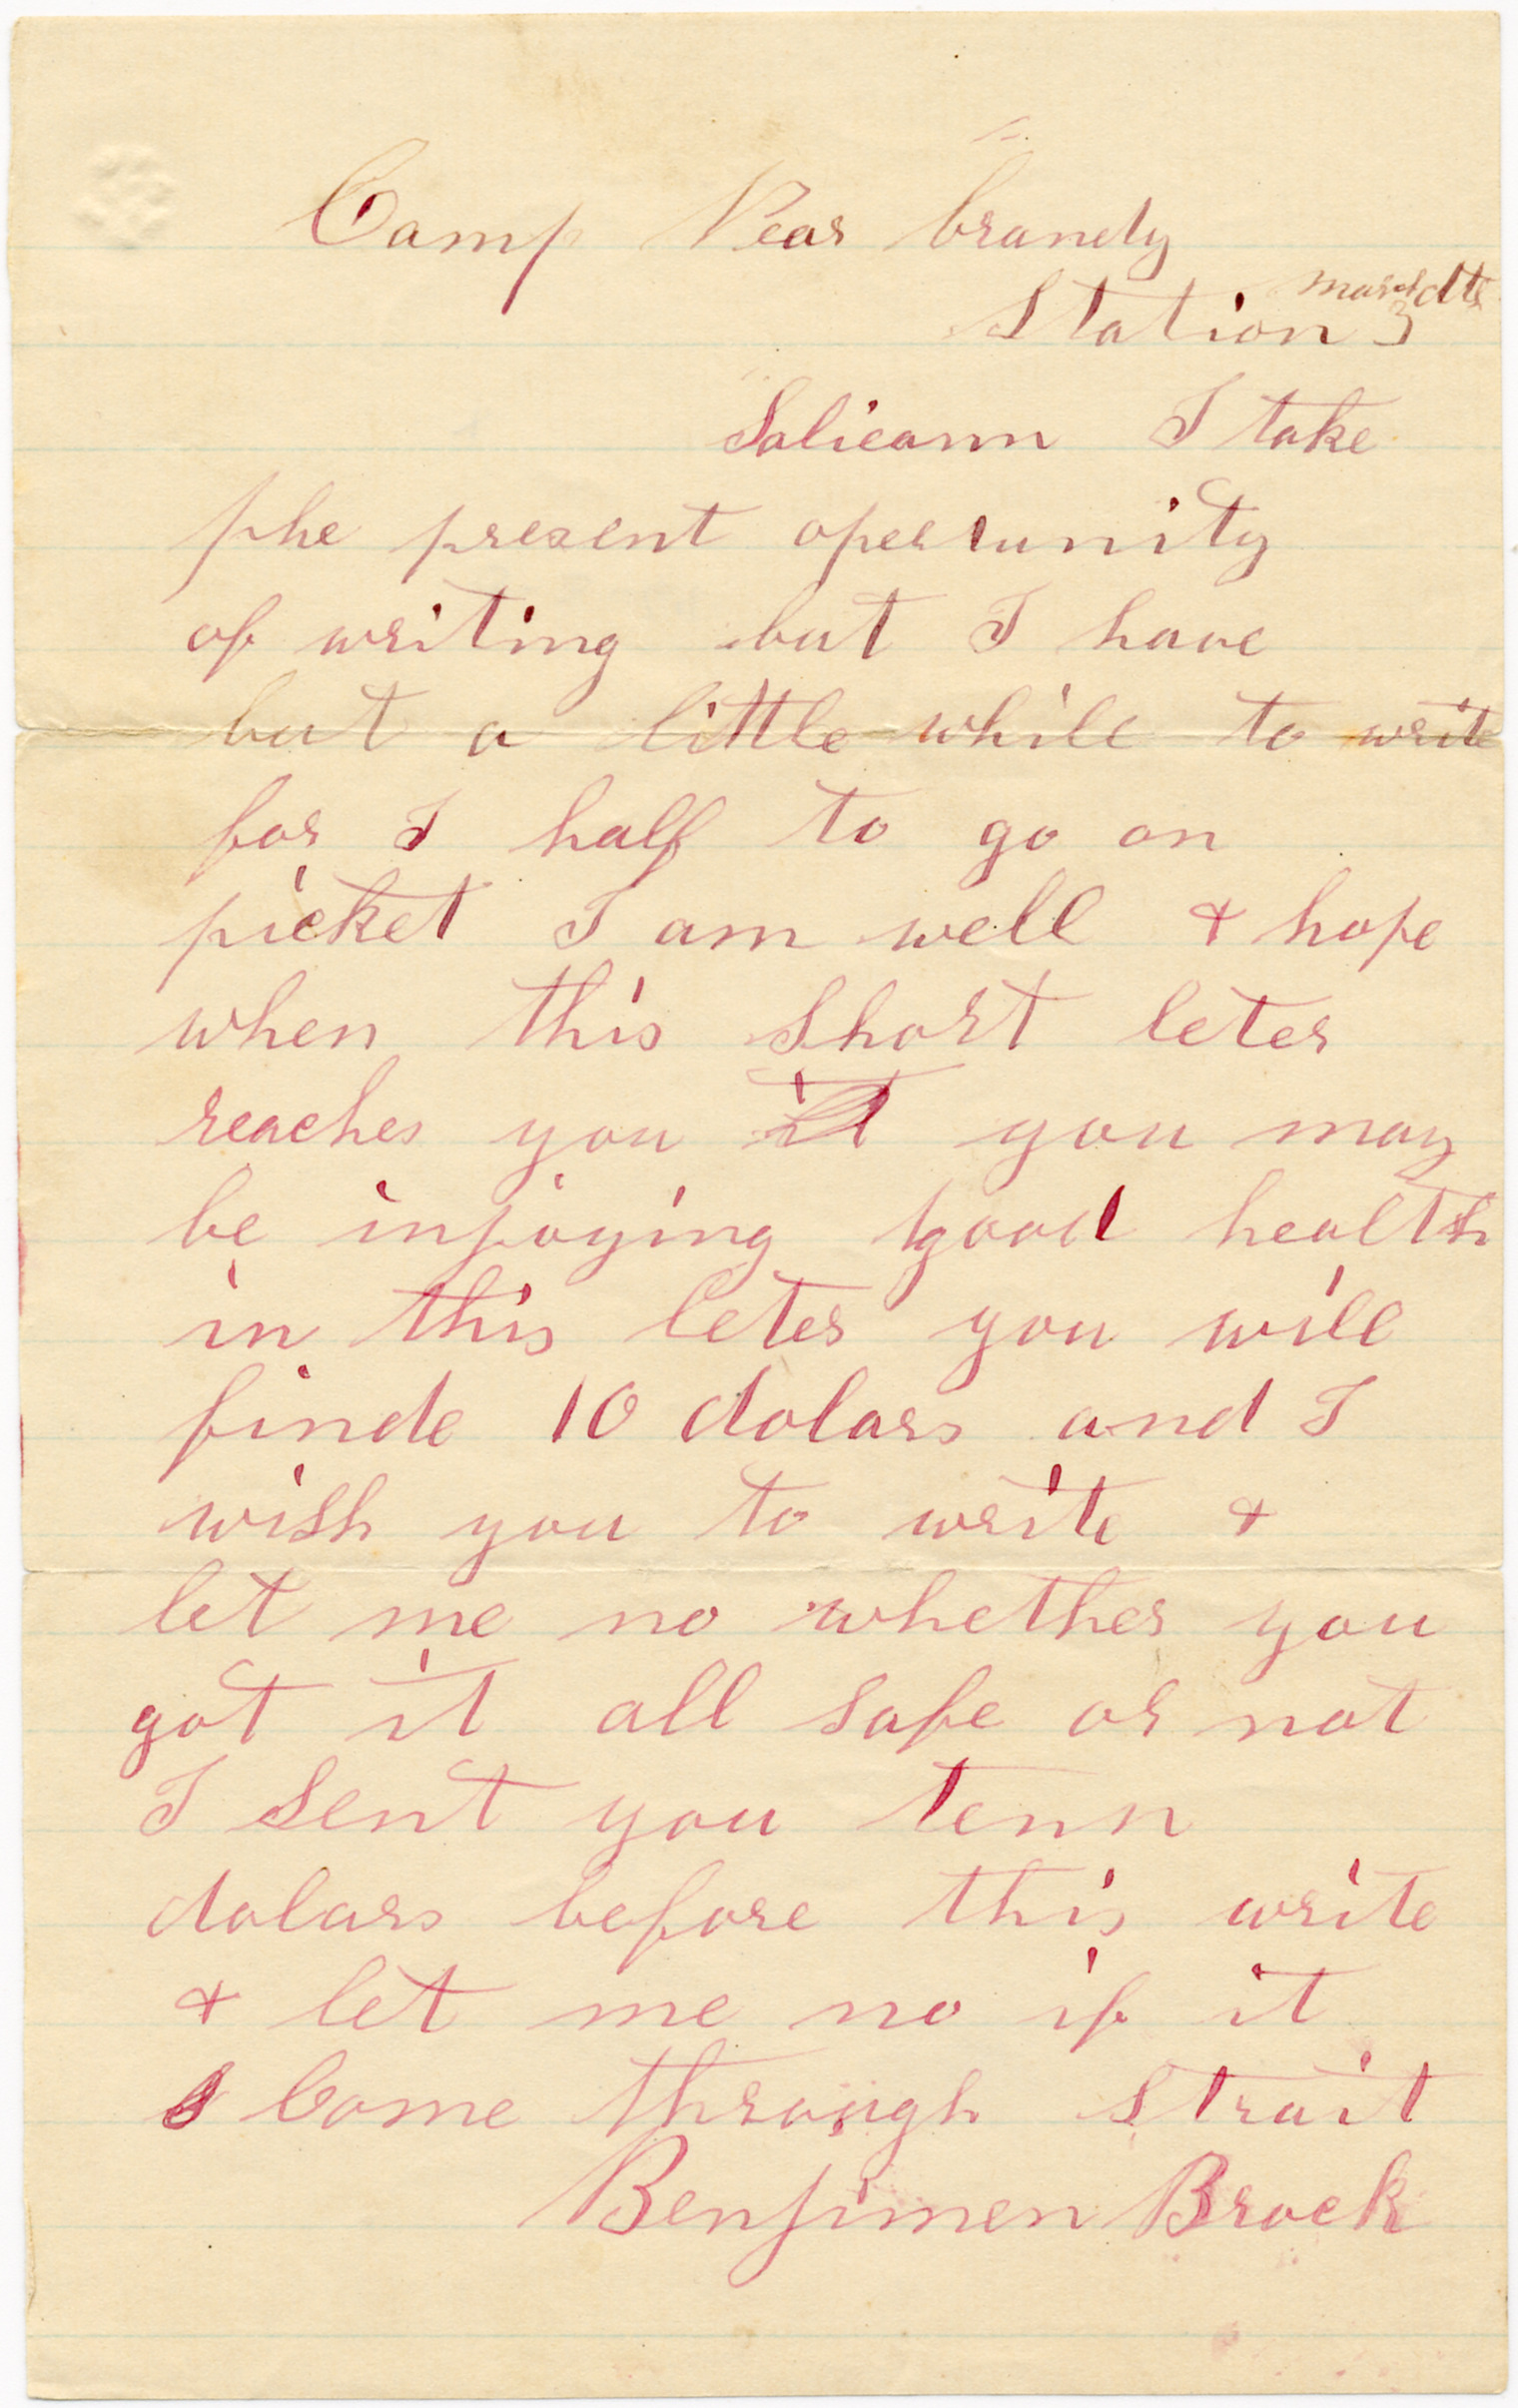 Camp Near brandy
Station march 3 dts
Salieann I take
phe present opertunity
of writing but I have
but a little while to write
for I half to go on
picket I am well & hope
when this Short leter
reaches you it you may
be injoying good health
in this leter you will
finde 10 dolars and I
wish you to write &
let me no whether you
got it all safe or not
I Sent you tenn
dolars before this write
& let me no if it
Come through Strait
Benjimen Brock